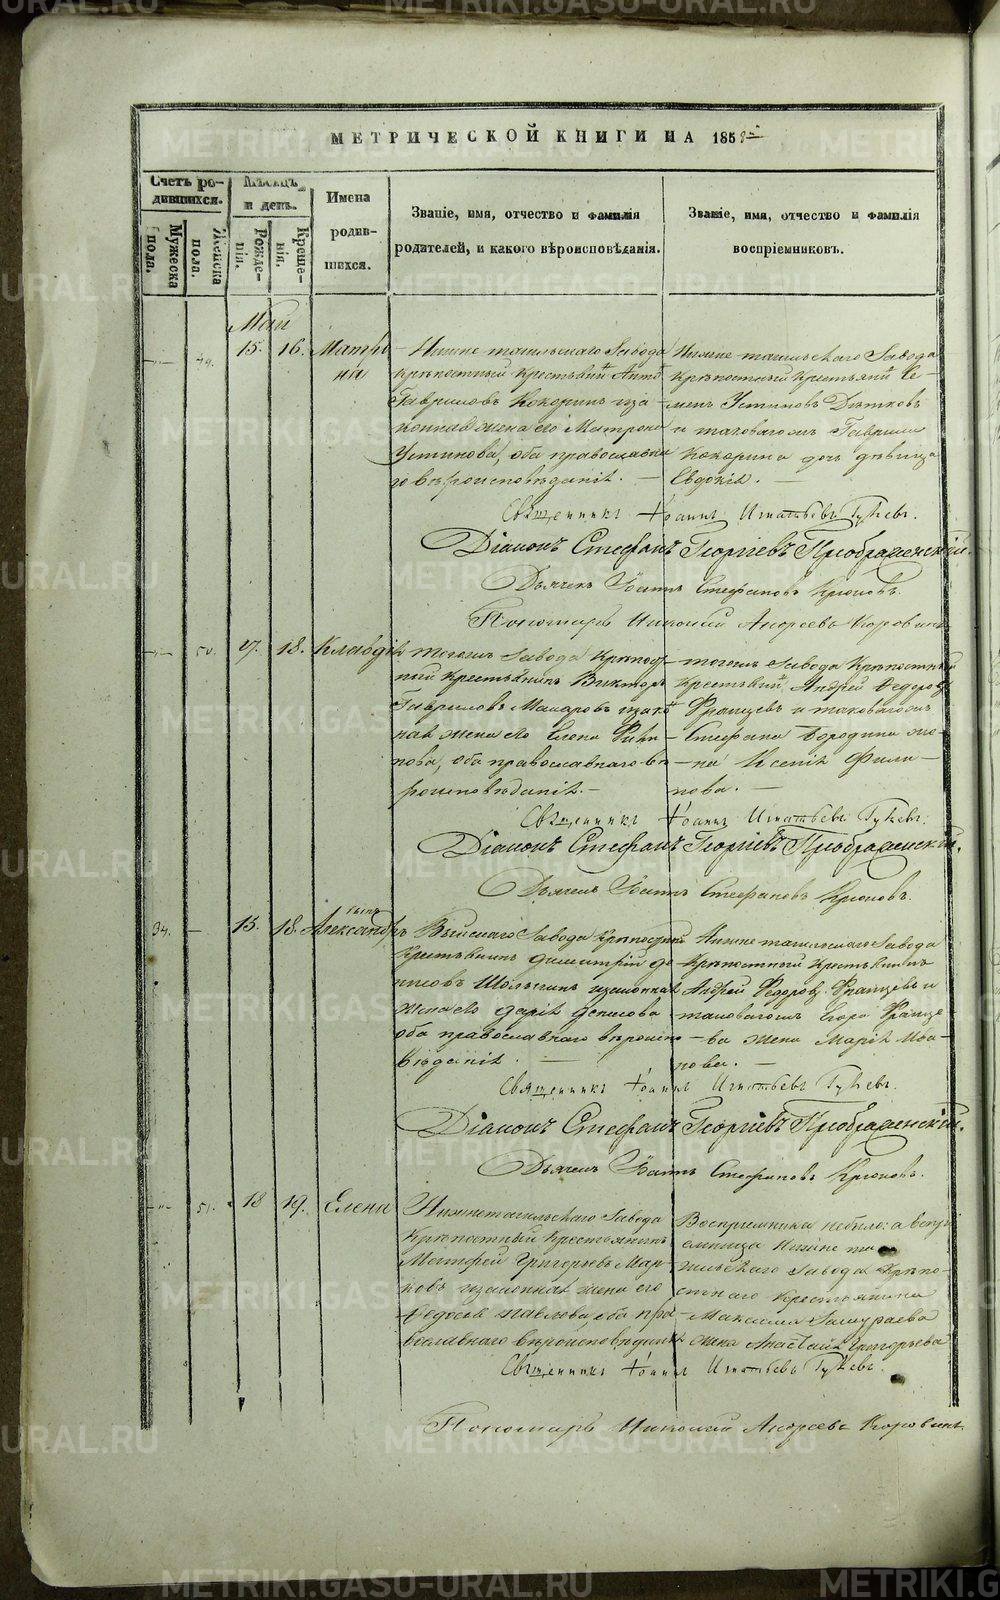 МЕТРИЧЕСКОЙ КНИГИ НА 1858
Счетъ ро-
дившихся.
Мужеска
пола.
Женска
пола.
Мѣсяцъ
и день.
Рожде-
нія.
Креще-
нія.
Имена
родив-
шихся.
Званіе, имя, отчество и фамилія
родителей, и какого вѣроисповѣданія.
Званіе, имя, отчество и фамилія
воспріемниковъ.
Май
49. 15. 16. Матро-
на
Нижне тагильскаго Завода
крѣпостный крестьянинъ
Гавриловъ Кокоринъ и за-
конная жена его Матрона
Устинова, оба православна
го вѣроисповѣданія. —
Нижне тагильскаго Завода
крѣпостный крестьянинъ Се-
менъ Устиновъ Дѣтковъ
и таковагожъ Гаврила
Кокорина дочь дѣвица
Евдокія. —
Священникъ Іоаннъ Игнатьевъ
Діаконъ Стефанъ Георгіевъ Преображенскій.
Дьячекъ Іоаннъ Стефановъ Крюковъ.
Пономарь Николай Андреевъ Коровинъ
50. 17. 18. Клавдія
тогожъ Завода Крѣпост-
ный Крестьянинъ Викторъ
Гавриловъ Макаровъ и закон
ная жена его Елена Фили-
пова, оба православнаго вѣ-
роисповѣданія. —
тогожъ Завода Крѣпостный
Крестьянинъ Андрей Федоровъ
Францевъ и таковагожъ
Стефана Бородина же-
на Ксенія Фили-
пова. —
Священникъ Іоаннъ Игнатьевъ
Діаконъ Стефанъ Георгіевъ Преображенскій.
Дьячекъ Іоаннъ Стефановъ Крюковъ.
34. — 15. 18. Александръ
Выйскаго Завода Крѣпостный
Крестьянинъ Димитрій Де-
нисовъ и законная
жена его Дарія Денисова
оба православнаго вѣроиспо
вѣданія. —
Нижне тагильскаго Завода
Крѣпостный Крестьянинъ
Андрей Федоровъ Францевъ и
таковагожъ Францо-
ва жена Марія Ива-
нова. —
Священникъ Іоаннъ Игнатьевъ
Діаконъ Стефанъ Георгіевъ Преображенскій.
Дьячекъ Іоаннъ Стефановъ Крюковъ.
51. 18 19. Елена
Нижнетагильскаго Завода
Крѣпостный Крестьянинъ
Матфей Григорьевъ Мар-
ковъ и законная жена его
Федосья Павлова оба пра-
вославнаго вѣроисповѣданія
Воспріемника небыло: а воспрі-
емница Нижне та
гильскаго Завода Крѣпо-
стнаго Крестьянина
Максима
жена Анастасія Григорьева
Священникъ Іоаннъ Игнатьевъ
Пономарь Николай Андреевъ Коровинъ
METRIKI.GASO-URAL.RU